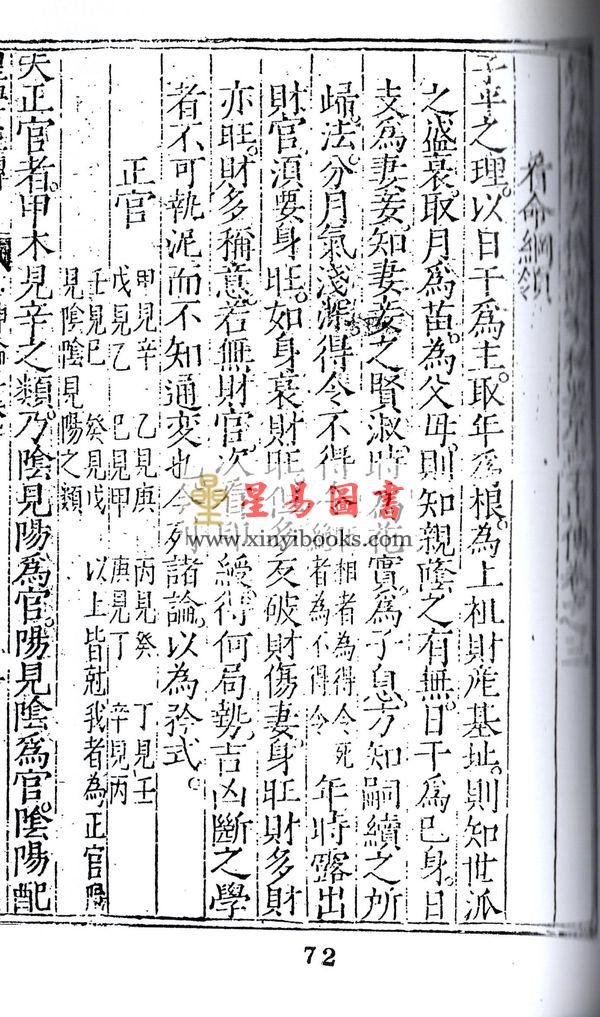 看命綱領
子平之理。以日干爲主。取年爲根。為上祖財産基址。則知世派
之盛衰。取月爲苗。為父母。則知親廕之有無。日干爲己身。日
支爲妻妾。知妻妾之賢淑。時爲花實。爲子息。方知嗣續之所
歸。法分月氣淺深。得令不得令
相者為得令死
者為不得令
年時露出
財官。須要身旺。如身衰財旺
多
破財傷妻。身旺財多財
亦旺。財多稱意。若無財官。次看
得何局勢。吉凶斷之。學
者不可執泥而不知通変也今列諸論。以為矜式。
正官
甲見辛 乙見庚 丙見癸 丁見壬
戊見乙 己見甲 庚見丁 辛見丙
壬見巳 癸見戊 以上皆尅我者為正官陽
見陰陰見陽之類
夫正官者。甲木見辛之類。乃陰見陽爲官。陽見陰爲官。陰陽配
星易圖書
www.xinyibooks.com
72